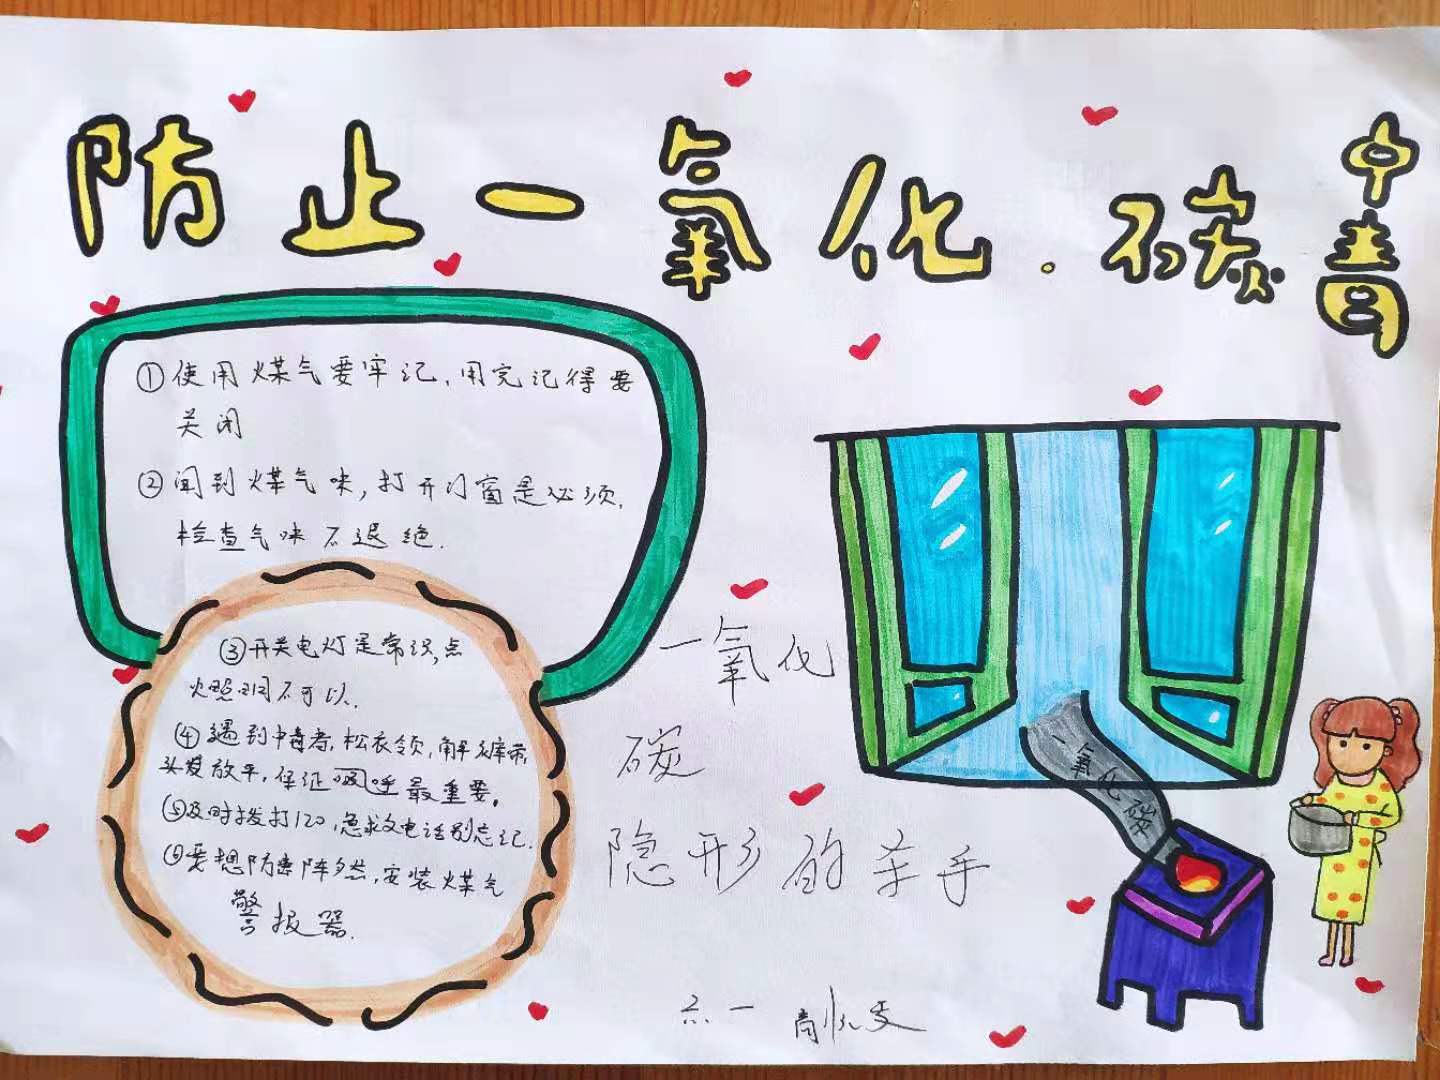 防止一氧化碳中毒
①使用煤气要牢记，用完记得要
关闭
②闻到煤气味，打开门窗是必须，
检查气味不退绝．
③开关电灯是常识，点
火照明不可以．
④遇到中毒者，松衣领，解裤带，
头发放平，保证吸呼最重要。
⑤及时拨打120，急救电话别忘记．
⑥要想防患于未然，安装煤气
警报器．
一氧化
碳
隐形的杀手
一氧化碳
六．一